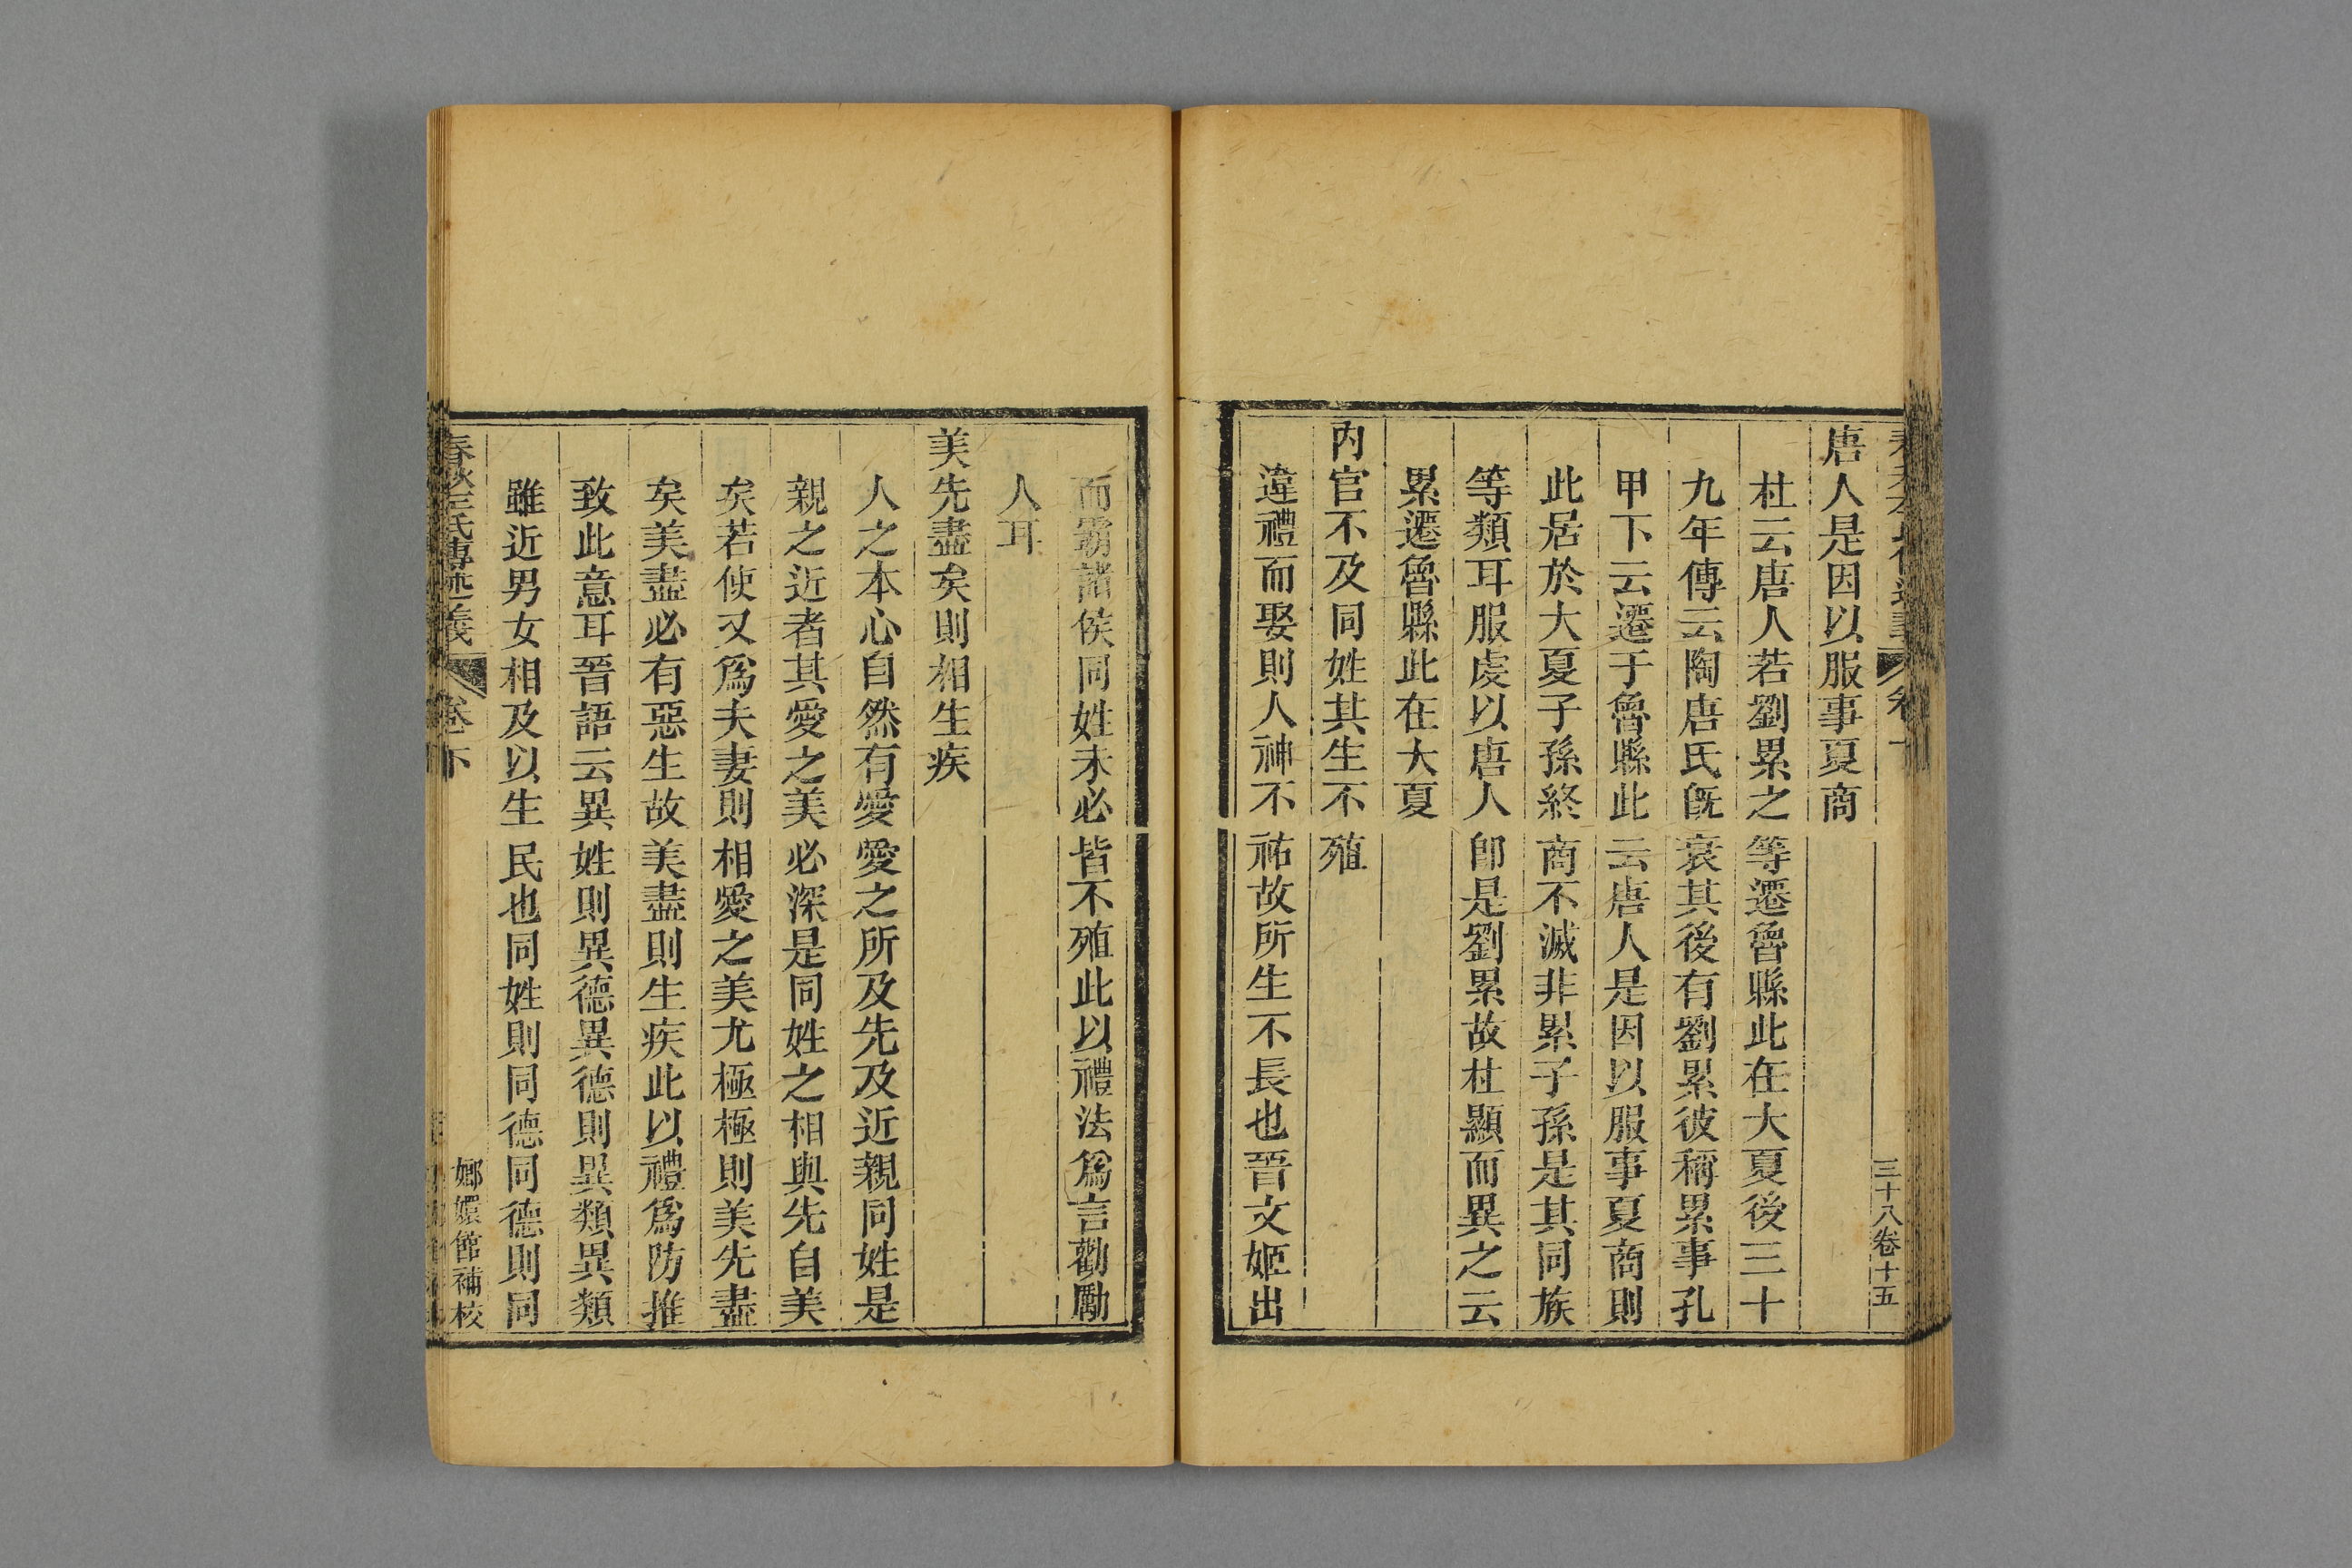 三十八卷十五
唐人是因以服事夏商
杜云唐人若劉累之等遷魯縣此在大夏後三十
九年傳云陶唐氏旣衰其後有劉累彼稱累事孔
甲下云遷于魯縣此云唐人是因以服事夏商則
此居於大夏子孫終商不滅非累子孫是其同族
等類耳服虔以唐人卽是劉累故杜顯而異之云
累遷魯縣此在大夏
內官不及同姓其生不殖
違禮而娶則人神不祐故所生不長也晉文姬出
而霸諸侯同姓未必皆不殖此以禮法爲言勸勵
人耳
美先盡矣則相生疾
人之本心自然有愛愛之所及先及近親同姓是
親之近者其愛之美必深是同姓之相與先自美
矣若使又爲夫妻則相愛之美尤極極則美先盡
矣美盡必有惡生故美盡則生疾此以禮爲防推
致此意耳晉語云異姓則異德異德則異類異類
雖近男女相及以生民也同姓則同德同德則同
春秋左氏傳述義 卷下
嫏嬛館補校